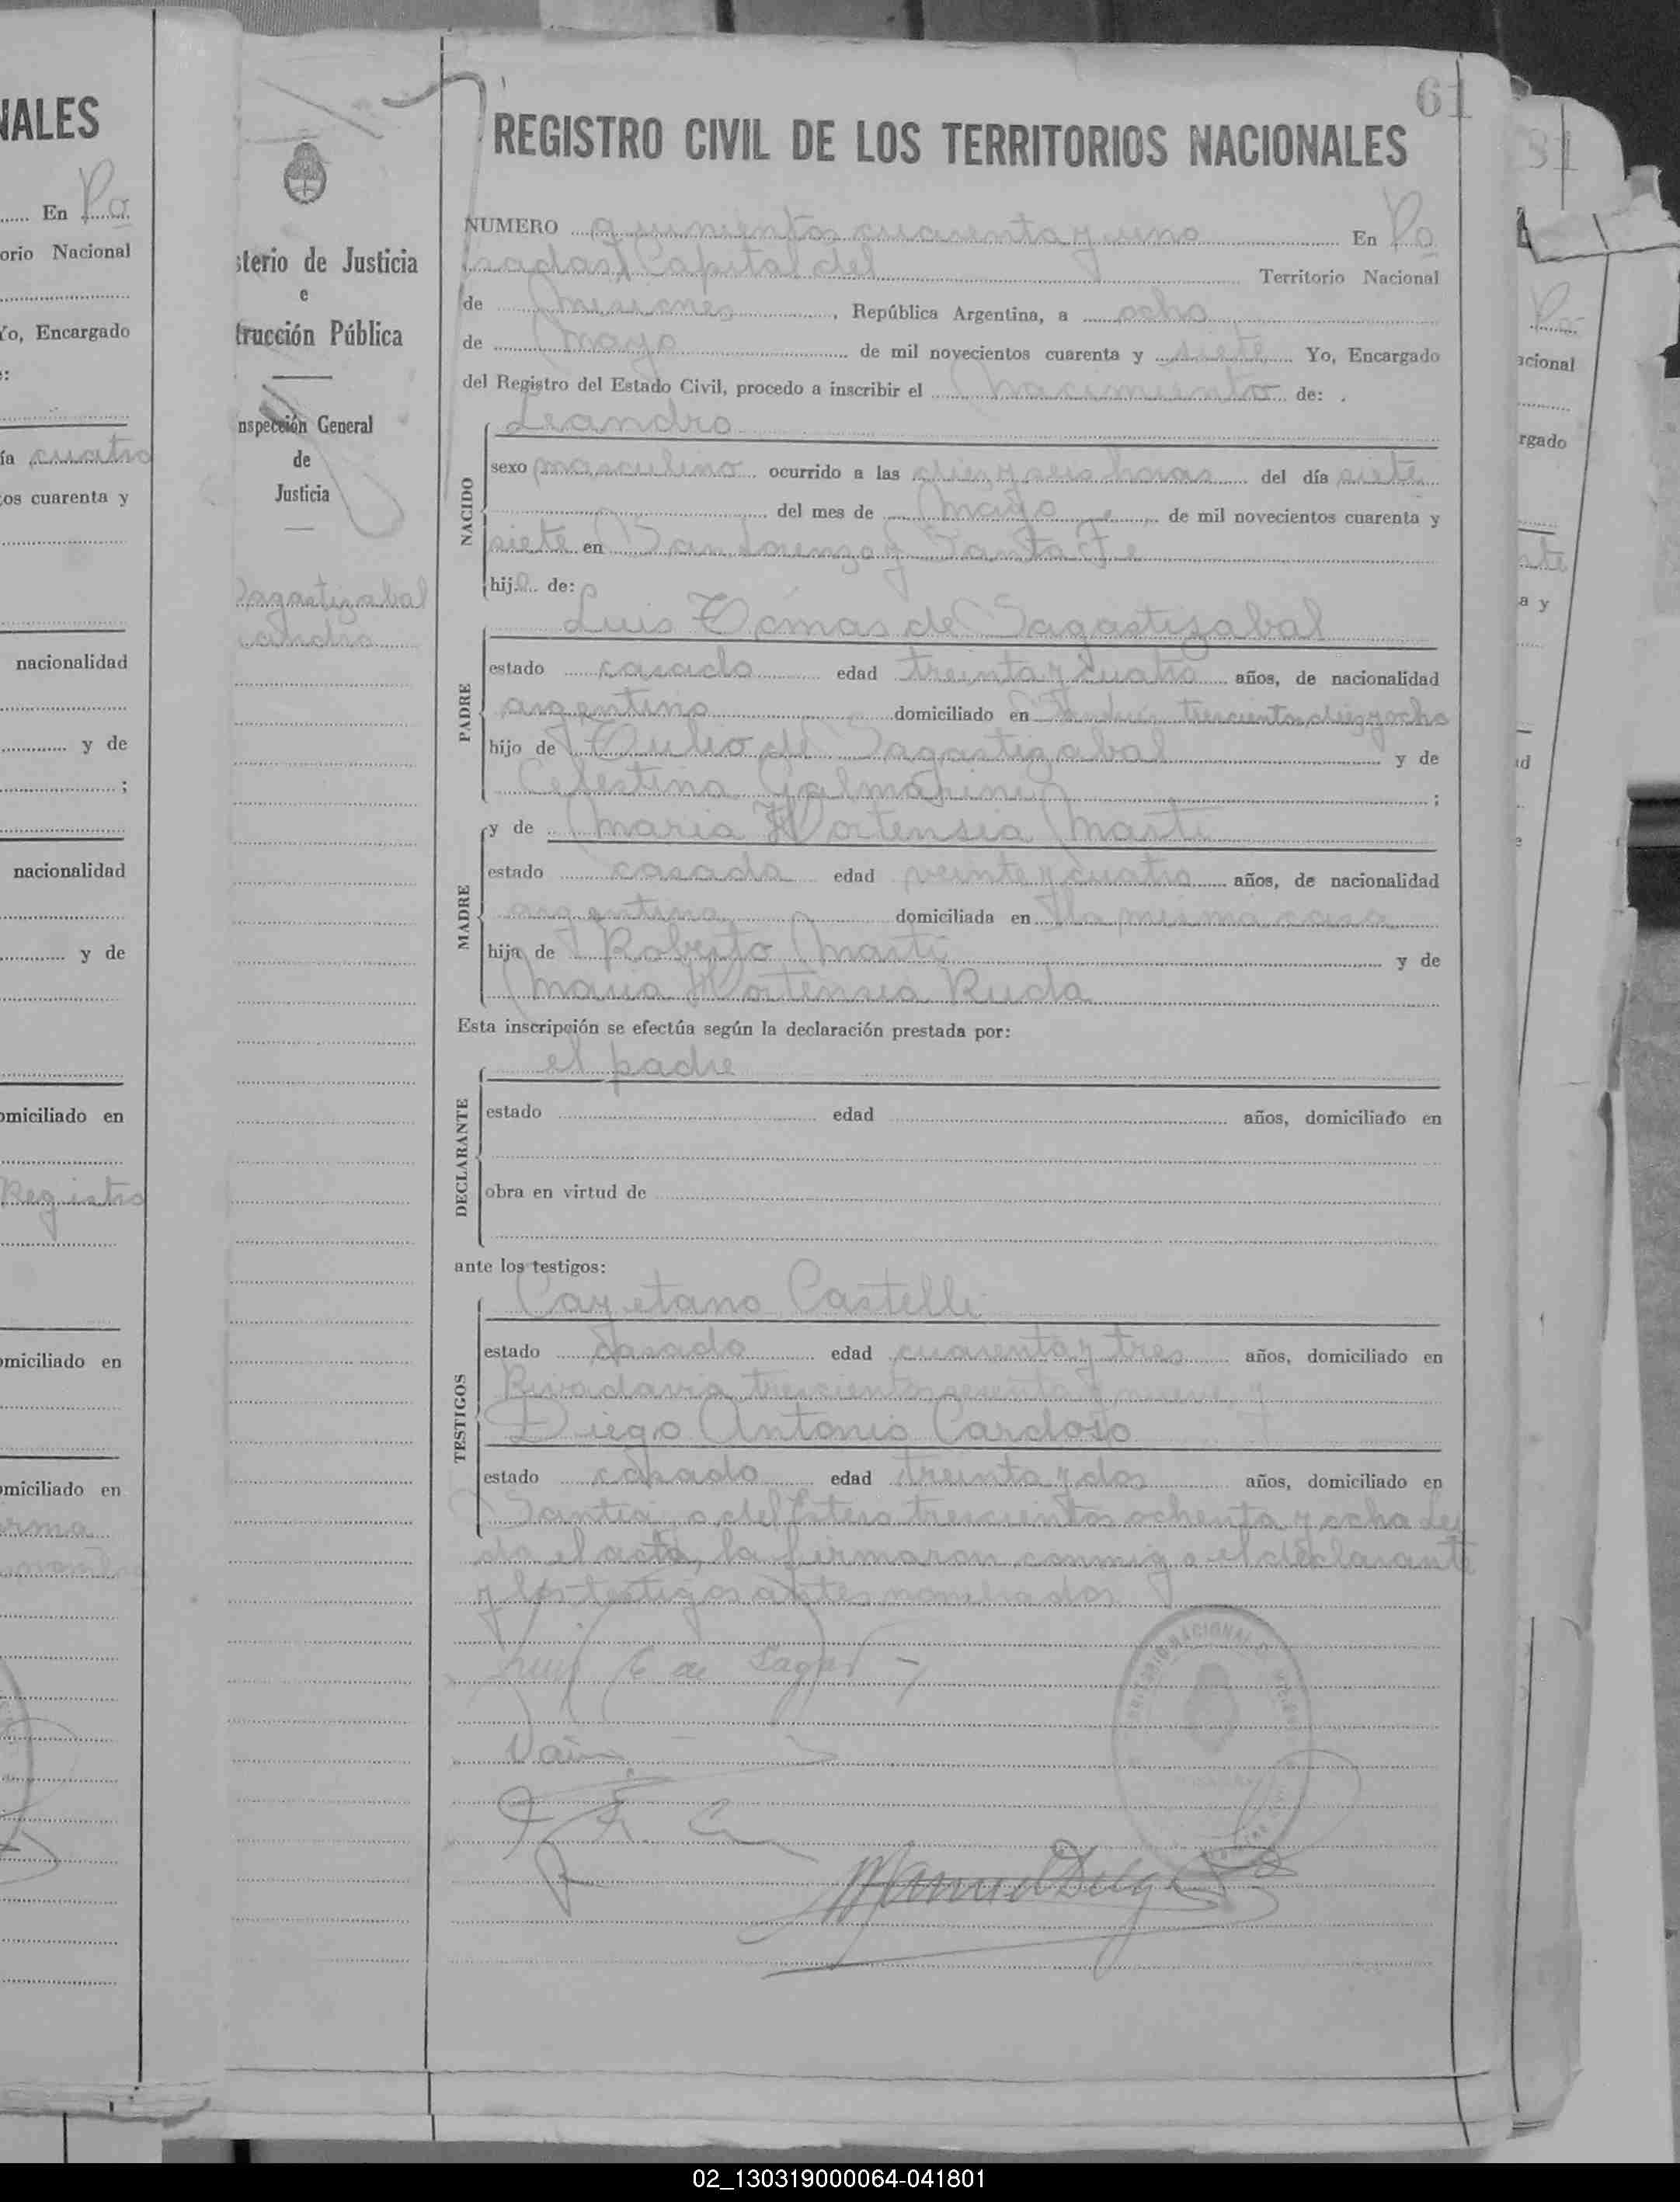 NALES
En Po
orio Nacional
Yo, Encargado
e:
ía cuatro
os cuarenta y
nacionalidad
y de
;
nacionalidad
y de
omiciliado en
Registro
omiciliado en
omiciliado en
sterio de Justicia
e
trucción Pública
nspección General
de
Justicia
Sagastizabal
Leandro
61
REGISTRO CIVIL DE LOS TERRITORIOS NACIONALES
NUMERO quinientos cuarenta y uno En Po
sadas, Capital del Territorio Nacional
de Misiones, República Argentina, a ocho
de Mayo de mil novecientos cuarenta y siete Yo, Encargado
del Registro del Estado Civil, procedo a inscribir el Nacimiento de:
NACIDO
Leandro
sexo masculino ocurrido a las diez y seis horas del día siete
del mes de Mayo de mil novecientos cuarenta y
siete en San Lorenzo y Santa Fe
hijo de:
PADRE
Luis Tómas de Sagastizabal
estado casado edad treinta y cuatro años, de nacionalidad
argentino domiciliado en trescientos diez y ocho
hijo de Tulio de Sagastizabal y de
Celestina Galmarini ;
MADRE
y de Maria Hortensia Marti
estado casada edad veinte y cuatro años, de nacionalidad
argentina domiciliada en la misma casa
hija de Roberto Marti y de
Maria Hortensia Ruda
Esta inscripción se efectúa según la declaración prestada por:
DECLARANTE
el padre
estado edad años, domiciliado en
obra en virtud de
ante los testigos:
TESTIGOS
Cayetano Castelli
estado casado edad cuarenta y tres años, domiciliado en
Rivadavia trescientos y nueve y
Diego Antonio Cardoso
estado casado edad treinta y dos años, domiciliado en
Santiago del Estero trescientos ochenta y ocho Lei
do el acta, la firmaron conmigo el declarante
y los testigos antes nombrados
Luis T de Sagas
Manuel Delg
81
Po
acional
rgado
a y
02_130319000064-041801